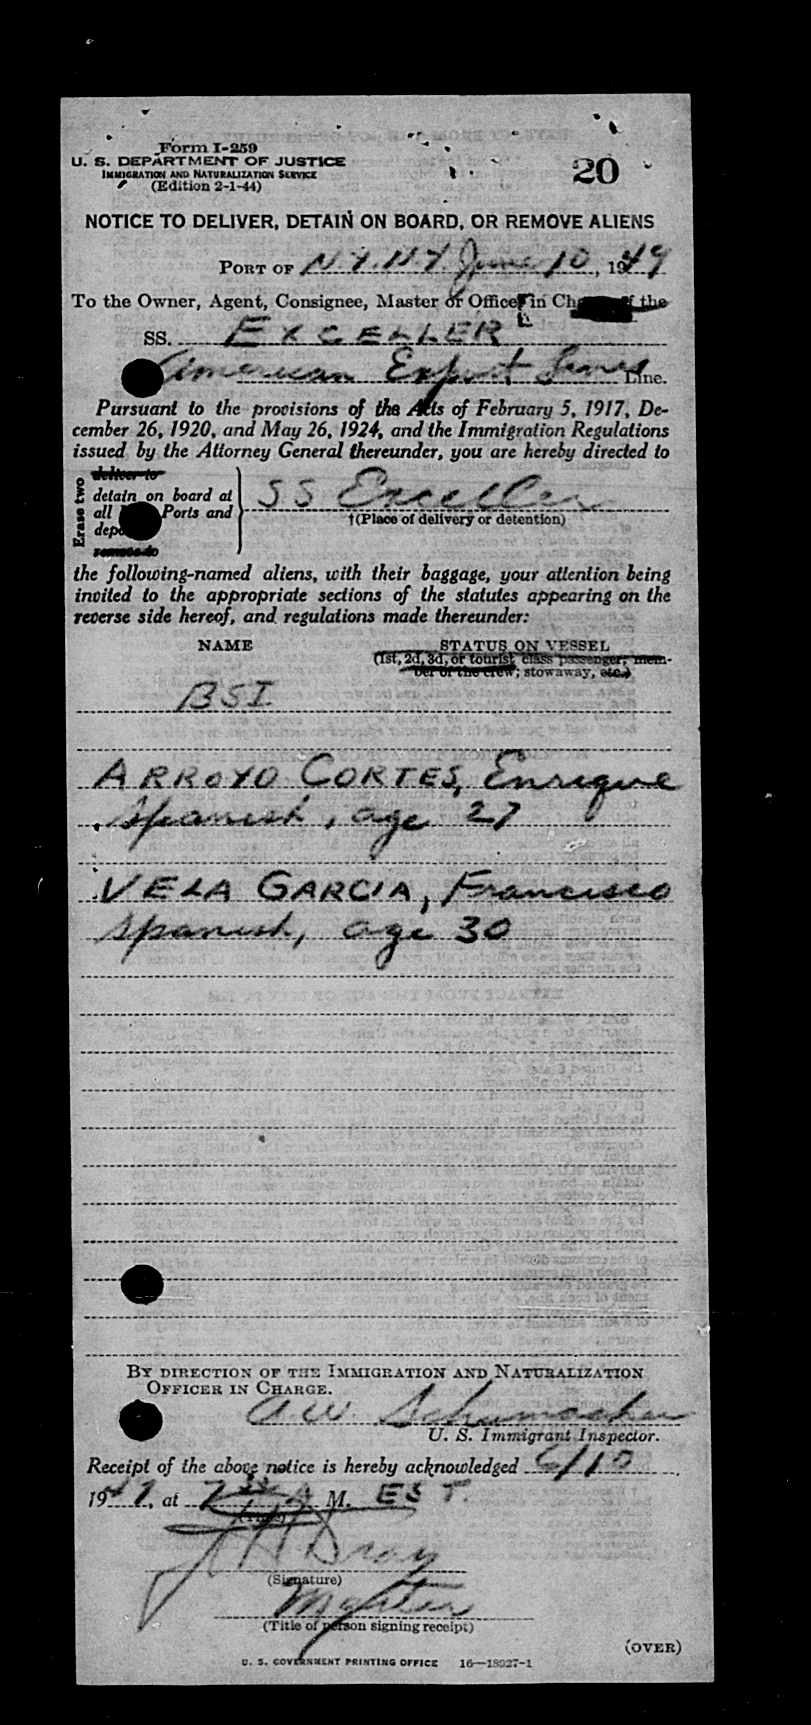 Form I-259
U. S. DEPARTMENT OF JUSTICE
IMMIGRATION AND NATURALIZATION SERVICE
(Edition 2-1-44)
20
NOTICE TO DELIVER, DETAIN ON BOARD, OR REMOVE ALIENS
PORT OF N.Y. N.Y. June 10, 1949
To the Owner, Agent, Consignee, Master or Officer in Ch of the
SS. EXCELLER
American Export Lines Line.
Pursuant to the provisions of the Acts of February 5, 1917, De-
cember 26, 1920, and May 26, 1924, and the Immigration Regulations
issued by the Attorney General thereunder, you are hereby directed to
Erase two
deliver to
detain on board at
all Ports and
remove to
SS Exceller
†(Place of delivery or detention)
the following-named aliens, with their baggage, your attention being
invited to the appropriate sections of the statutes appearing on the
reverse side hereof, and regulations made thereunder:
NAME STATUS ON VESSEL
(1st, 2d, 3d, or tourist class passenger; mem-
ber of the crew; stowaway, etc.)
BSI
ARROYO CORTES, Enrique
Spanish, age 27
VELA GARCIA, Francisco
Spanish, age 30
BY DIRECTION OF THE IMMIGRATION AND NATURALIZATION
OFFICER IN CHARGE.
A W Schumacher
U. S. Immigrant Inspector.
Receipt of the above notice is hereby acknowledged 6/10
1949, at 7 55 A M. EST.
(Time)
(Signature)
Master
(Title of person signing receipt)
(OVER)
U. S. GOVERNMENT PRINTING OFFICE 16—18927-1